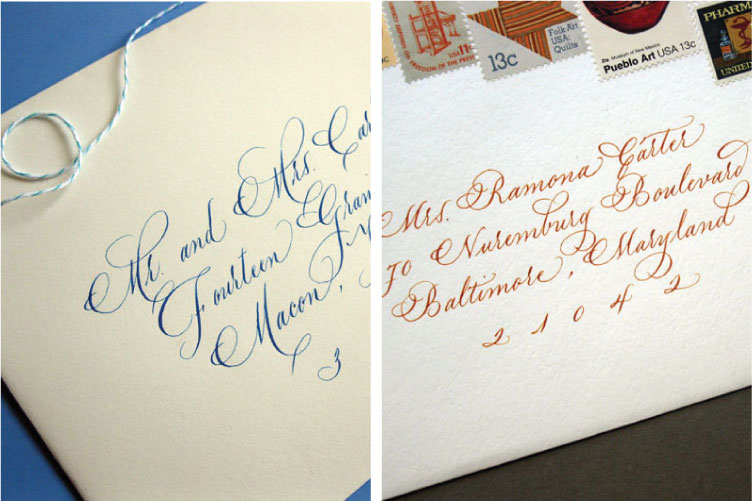 Mr. and Mrs. Car
Fourteen Gran
Macon,
3
USA 11c
FREEDOM OF THE PRESS
Folk Art
USA:
Quilts
13c
Museum of New Mexico
Pueblo Art USA 13c
PHARM
UNITED
Mrs. Ramona Carter
70 Nuremburg Boulevard
Baltimore, Maryland
2 1 0 4 2